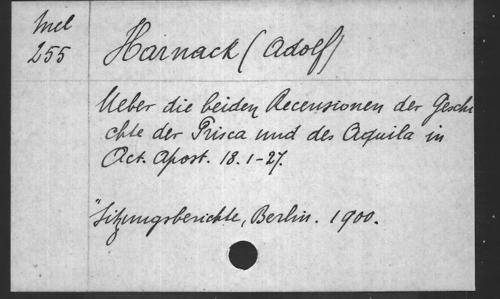 Mel
255
Harnack (Adolf)
Ueber die beiden Recensionen der Geschi
chte der Prisca und des Aquila in
Act. Apost. 18. 1-27.
"Sitzungsberichte, Berlin. 1900.